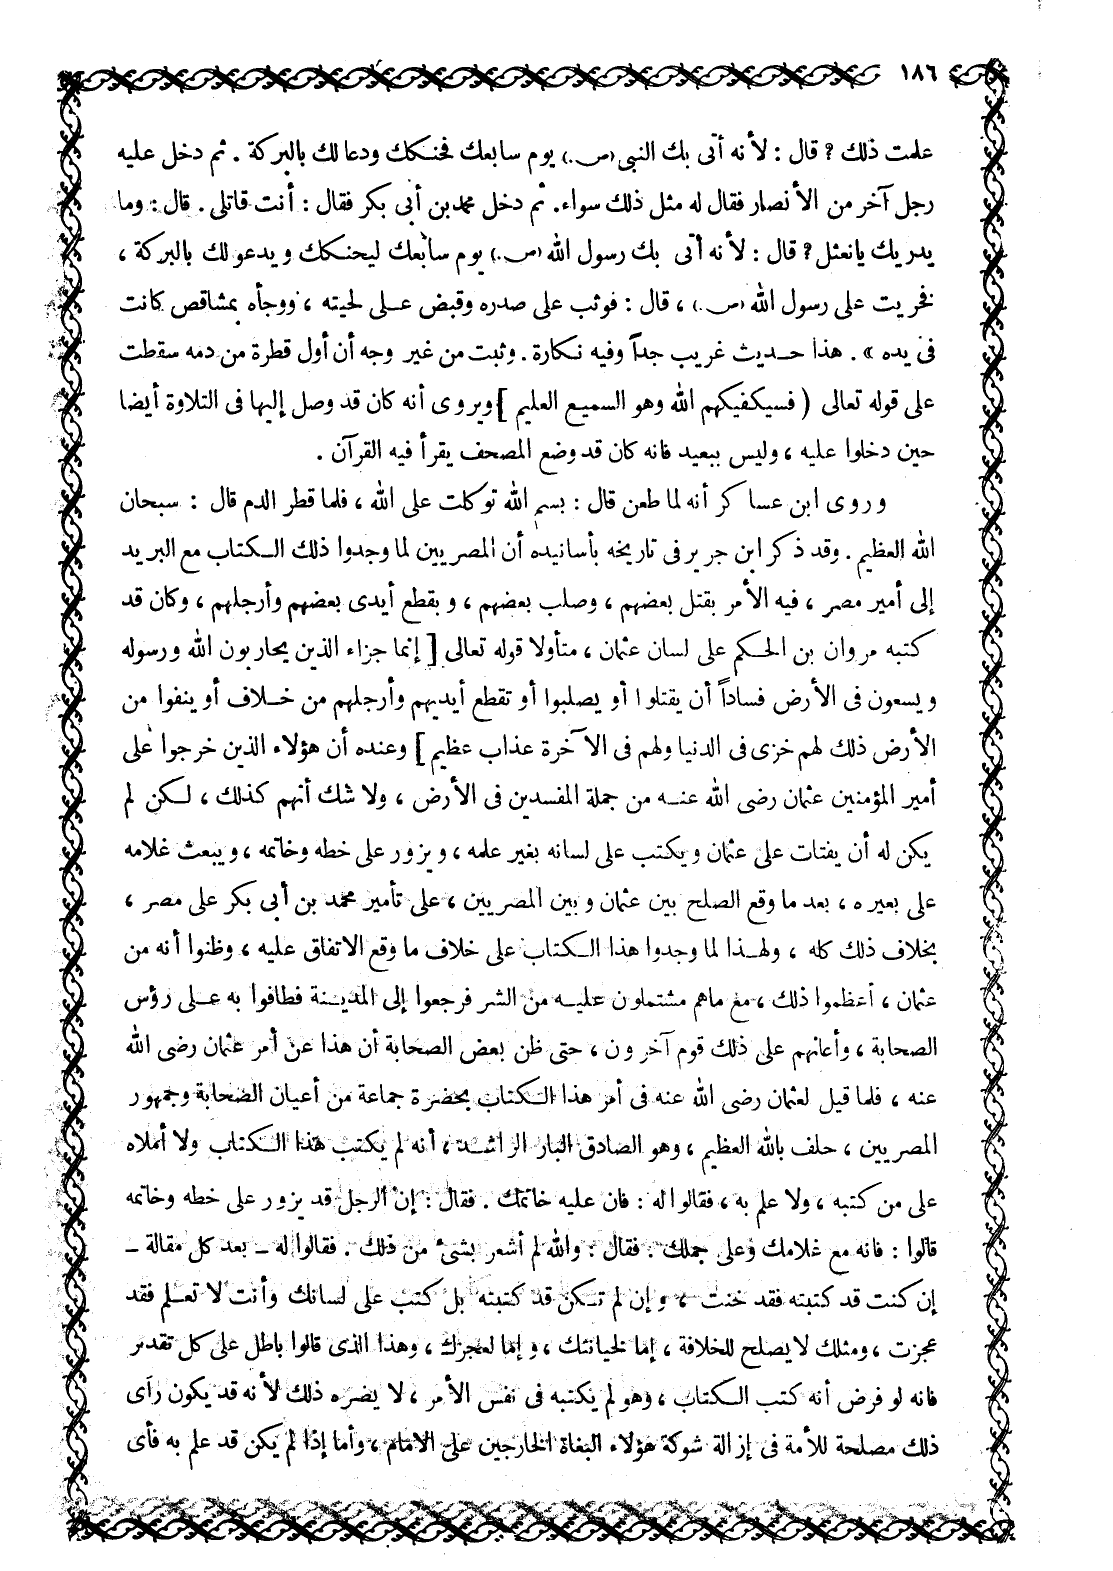 ١٨٦
علمت ذلك ? قال : لأنه أتى بك النبى (ص.) يوم سابعك فحنكك ودعا لك بالبركة . ثم دخل عليه
رجل آخر من الأنصار فقال له مثل ذلك سواء. ثم دخل محمد بن أبى بكر فقال : أنت قاتلى . قال : وما
يدريك يانعثل ? قال : لأنه أتى بك رسول الله (ص.) يوم سابعك ليحنكك ويدعو لك بالبركة ،
فخريت على رسول الله (ص.) ، قال : فوثب على صدره وقبض على لحيته ، ووجأه بمشاقص كانت
فى يده » . هذا حديث غريب جداً وفيه نكارة . وثبت من غير وجه أن أول قطرة من دمه سقطت
على قوله تعالى ( فسيكفيكهم الله وهو السميع العليم ] ويروى أنه كان قد وصل إليها فى التلاوة أيضا
حين دخلوا عليه ، وليس ببعيد فانه كان قد وضع المصحف يقرأ فيه القرآن .
وروى ابن عساكر أنه لما طعن قال : بسم الله توكلت على الله ، فلما قطر الدم قال : سبحان
الله العظيم . وقد ذكر ابن جرير فى تاريخه بأسانيده أن المصريين لما وجدوا ذلك الكتاب مع البريد
إلى أمير مصر ، فيه الأمر بقتل بعضهم ، وصلب بعضهم ، وبقطع أيدى بعضهم وأرجلهم ، وكان قد
كتبه مروان بن الحكم على لسان عثمان ، متأولا قوله تعالى [ إنما جزاء الذين يحاربون الله ورسوله
ويسعون فى الأرض فساداً أن يقتلوا أو يصلبوا أو تقطع أيديهم وأرجلهم من خلاف أو ينفوا من
الأرض ذلك لهم خزى فى الدنيا ولهم فى الآخرة عذاب عظيم ] وعنده أن هؤلاء الذين خرجوا على
أمير المؤمنين عثمان رضى الله عنه من جملة المفسدين فى الأرض ، ولا شك أنهم كذلك ، لكن لم
يكن له أن يفتات على عثمان ويكتب على لسانه بغير علمه ، ويزور على خطه وخاتمه ، ويبعث غلامه
على بعيره ، بعد ما وقع الصلح بين عثمان وبين المصريين ، على تأمير محمد بن أبى بكر على مصر ،
بخلاف ذلك كله ، ولهذا لما وجدوا هذا الكتاب على خلاف ما وقع الاتفاق عليه ، وظنوا أنه من
عثمان ، أعظموا ذلك ، مع ماهم مشتملون عليه من الشر فرجعوا إلى المدينة فطافوا به على رؤس
الصحابة ، وأعانهم على ذلك قوم آخرون ، حتى ظن بعض الصحابة أن هذا عن أمر عثمان رضى الله
عنه ، فلما قيل لعثمان رضى الله عنه فى أمر هذا الكتاب بحضرة جماعة من أعيان الصحابة وجمهور
المصريين ، حلف بالله العظيم ، وهو الصادق البار الراشد ، أنه لم يكتب هذا الكتاب ولا أملاه
على من كتبه ، ولا علم به ، فقالوا له : فان عليه خاتمك . فقال : إن الرجل قد يزور على خطه وخاتمه
قالوا : فانه مع غلامك وعلى جملك . فقال : والله لم أشعر بشئ من ذلك . فقالوا له ــ بعد كل مقالة ــ
إن كنت قد كتبته فقد خنت ، وإن لم تكن قد كتبته بل كتب على لسانك وأنت لا تعلم فقد
عجزت ، ومثلك لا يصلح للخلافة ، إما لخيانتك ، وإما لعجزك ، وهذا الذى قالوا باطل على كل تقدير
فانه لو فرض أنه كتب الكتاب ، وهو لم يكتبه فى نفس الأمر ، لا يضره ذلك لأنه قد يكون رأى
ذلك مصلحة للأمة فى إزالة شوكة هؤلاء البغاة الخارجين على الامام ، وأما إذا لم يكن قد علم به فأى